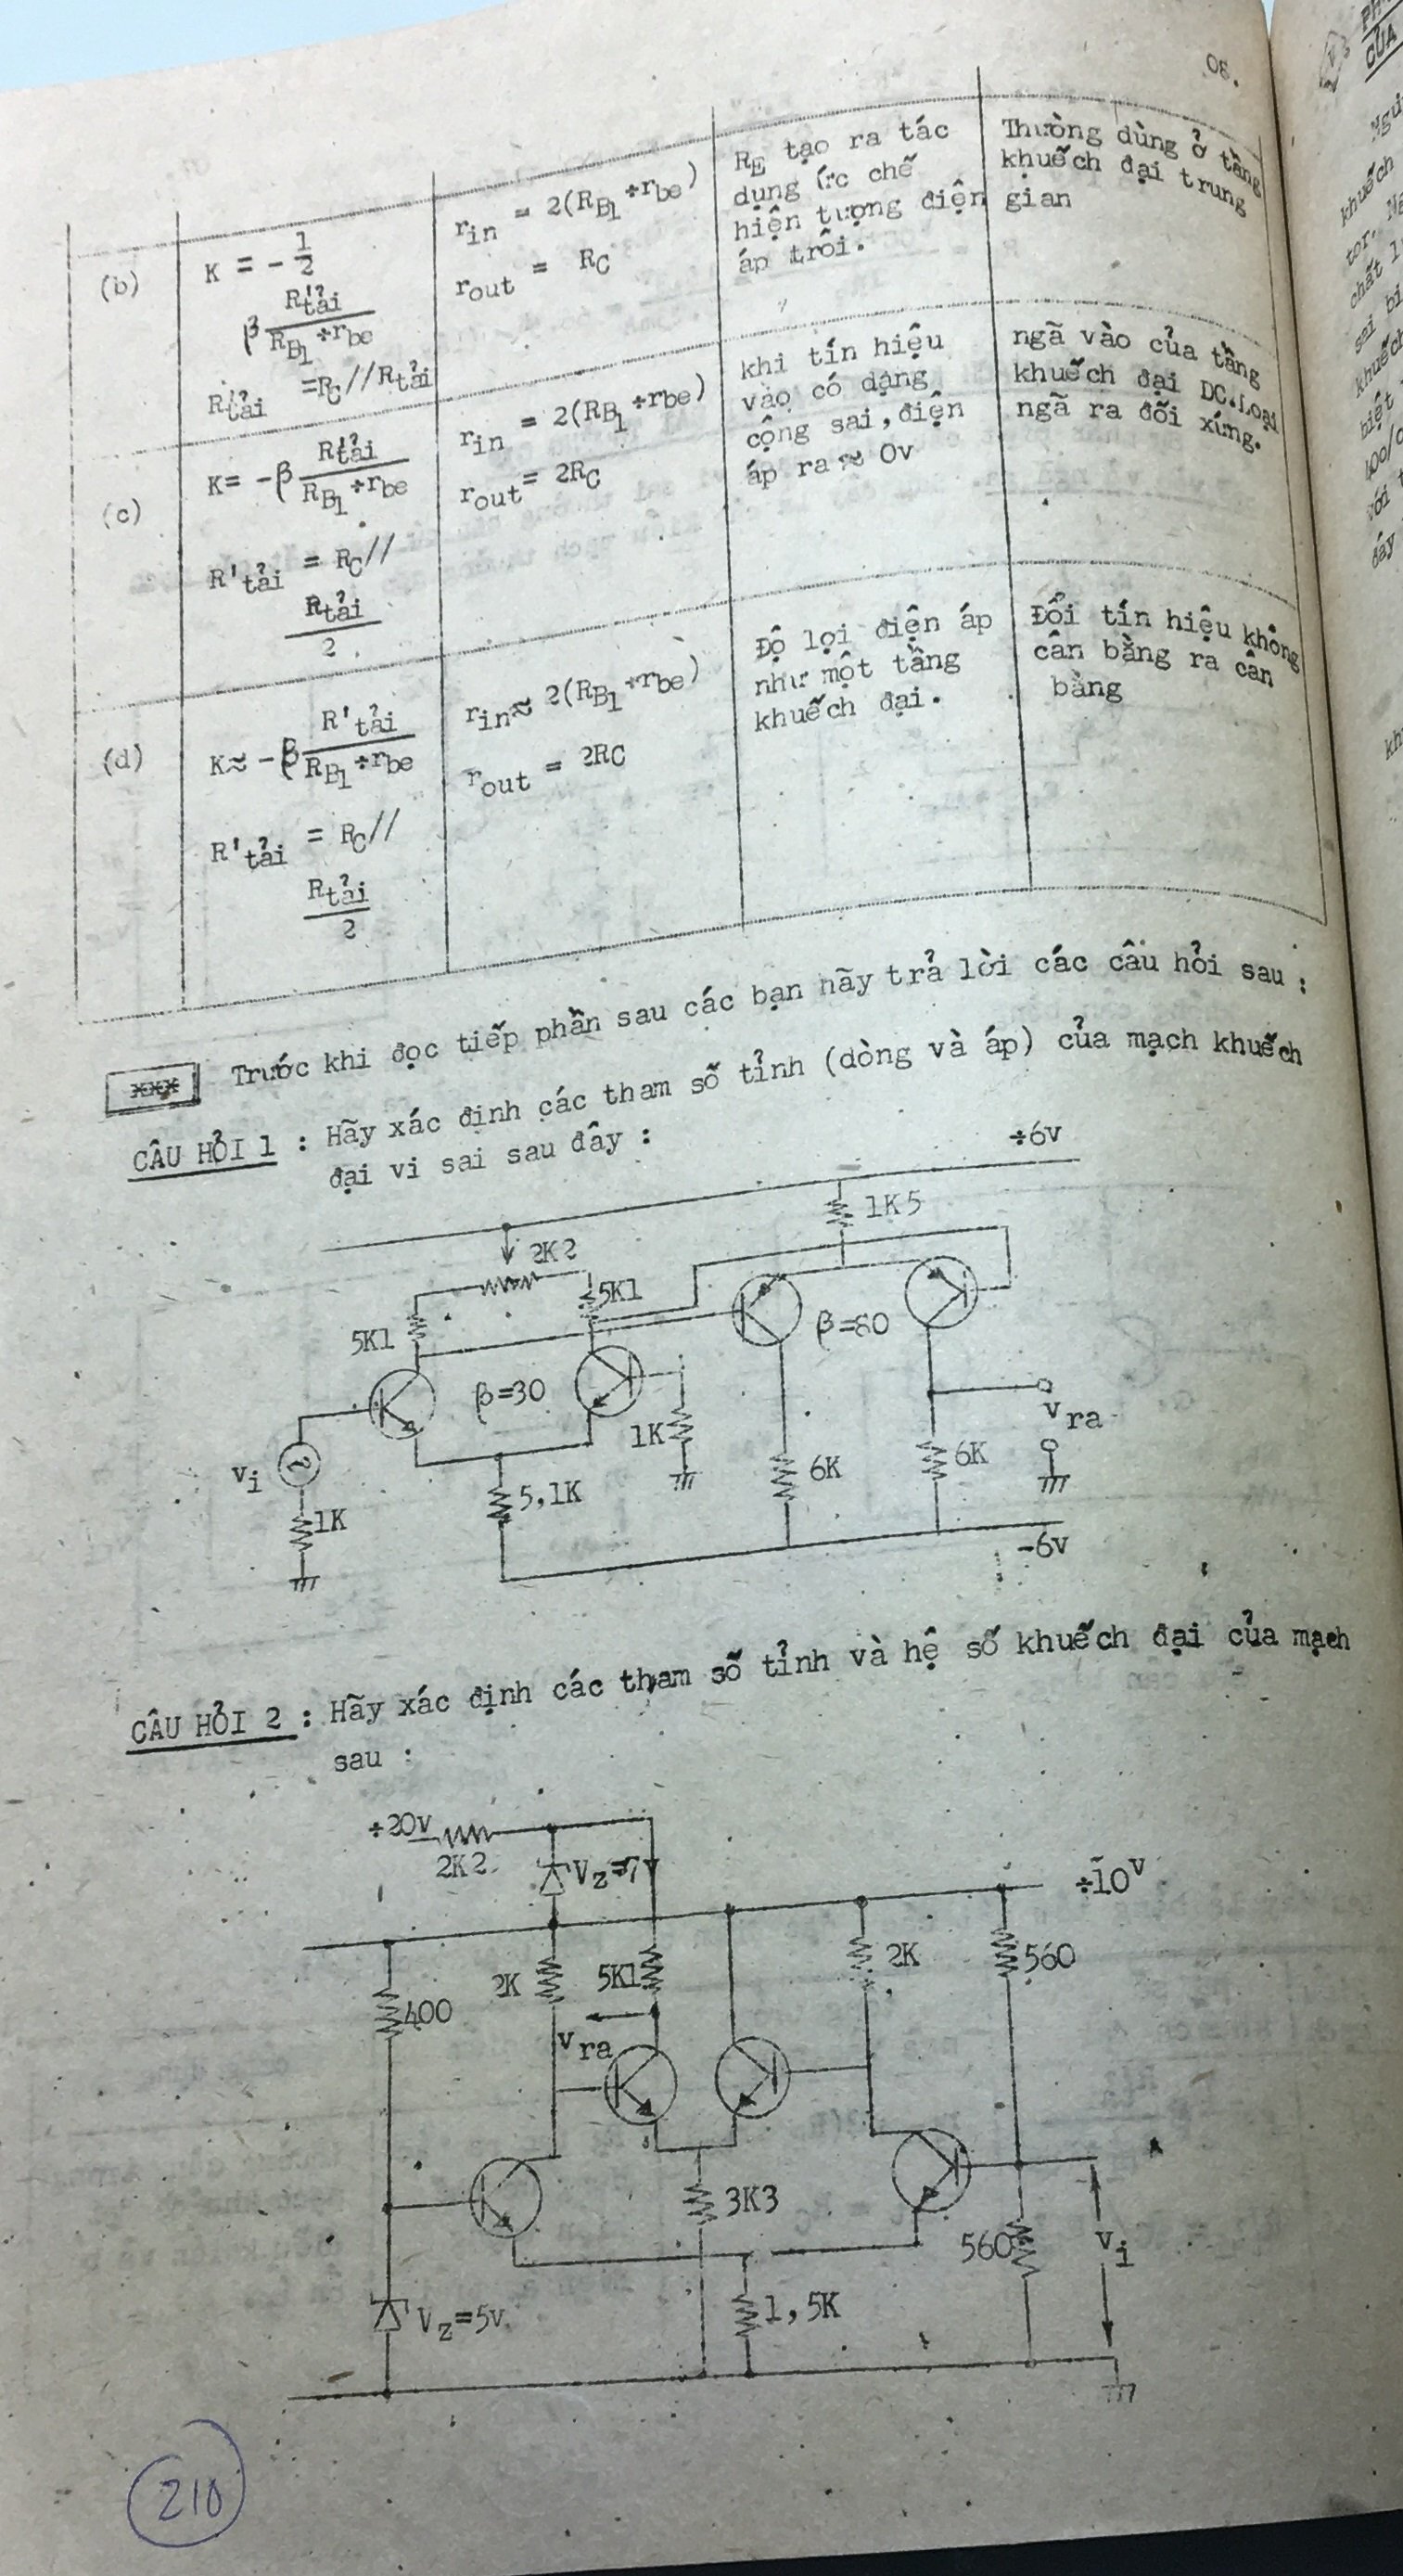 08.
(b)
K = - 1/2
β R'tải / RB1 ÷rbe
R'tải =RC//Rtải
rin = 2(RB1 ÷rbe)
rout = RC
RE tạo ra tác
dụng ức chế
hiện tượng điện
áp trôi.
Thường dùng ở tầng
khuếch đại trung
gian
(c)
K= -β R'tải / RB1 ÷rbe
R'tải = RC//
Rtải / 2
rin = 2(RB1 ÷rbe)
rout = 2RC
khi tín hiệu
vào có dạng
cộng sai,điện
áp ra ≈ 0v
ngã vào của tầng
khuếch đại DC.Loại
ngã ra đối xứng.
(d)
K≈ -β R'tải / RB1 ÷rbe
R'tải = RC//
Rtải / 2
rin≈ 2(RB1 ÷rbe)
rout = 2RC
Độ lợi điện áp
như một tầng
khuếch đại.
Đổi tín hiệu không
cân bằng ra cân
bằng
xxx Trước khi đọc tiếp phần sau các bạn hãy trả lời các câu hỏi sau :
CÂU HỎI 1 : Hãy xác định các tham số tỉnh (dòng và áp) của mạch khuếch
đại vi sai sau đây :
÷6v
1K5
2K2
5K1
5K1
β=80
β=30
1K
vra
vi
6K
6K
5,1K
1K
-6v
CÂU HỎI 2 : Hãy xác định các tham số tỉnh và hệ số khuếch đại của mạch
sau :
÷20v
2K2
Vz=7v
÷10v
2K
5K1
2K
560
400
vra
3K3
560
vi
1,5K
Vz=5v
210
PH
CỦA
khuếch
tor.
chất l
sai bi
khuếch
biệt
400/0
với t
đây
kh